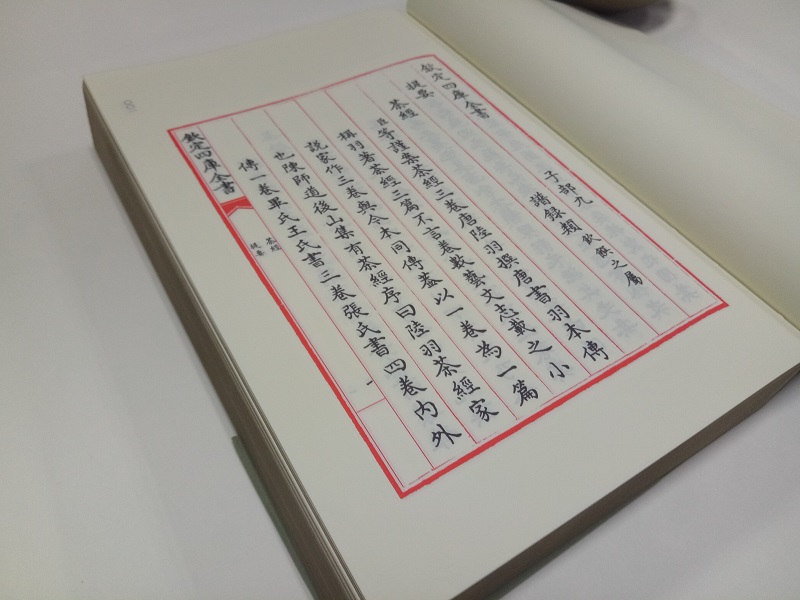 欽定四庫全書
子部九
提要
譜錄類 飲饌之屬
茶經
臣等謹案茶經三卷唐陸羽撰唐書羽本傳
稱羽著茶經三篇不言卷數藝文志載之小
說家作三卷與今本同傳蓋以一卷為一篇
也陳師道後山集有茶經序曰陸羽茶經家
傳一卷畢氏王氏書三卷張氏書四卷內外
欽定四庫全書
茶經
提要
一